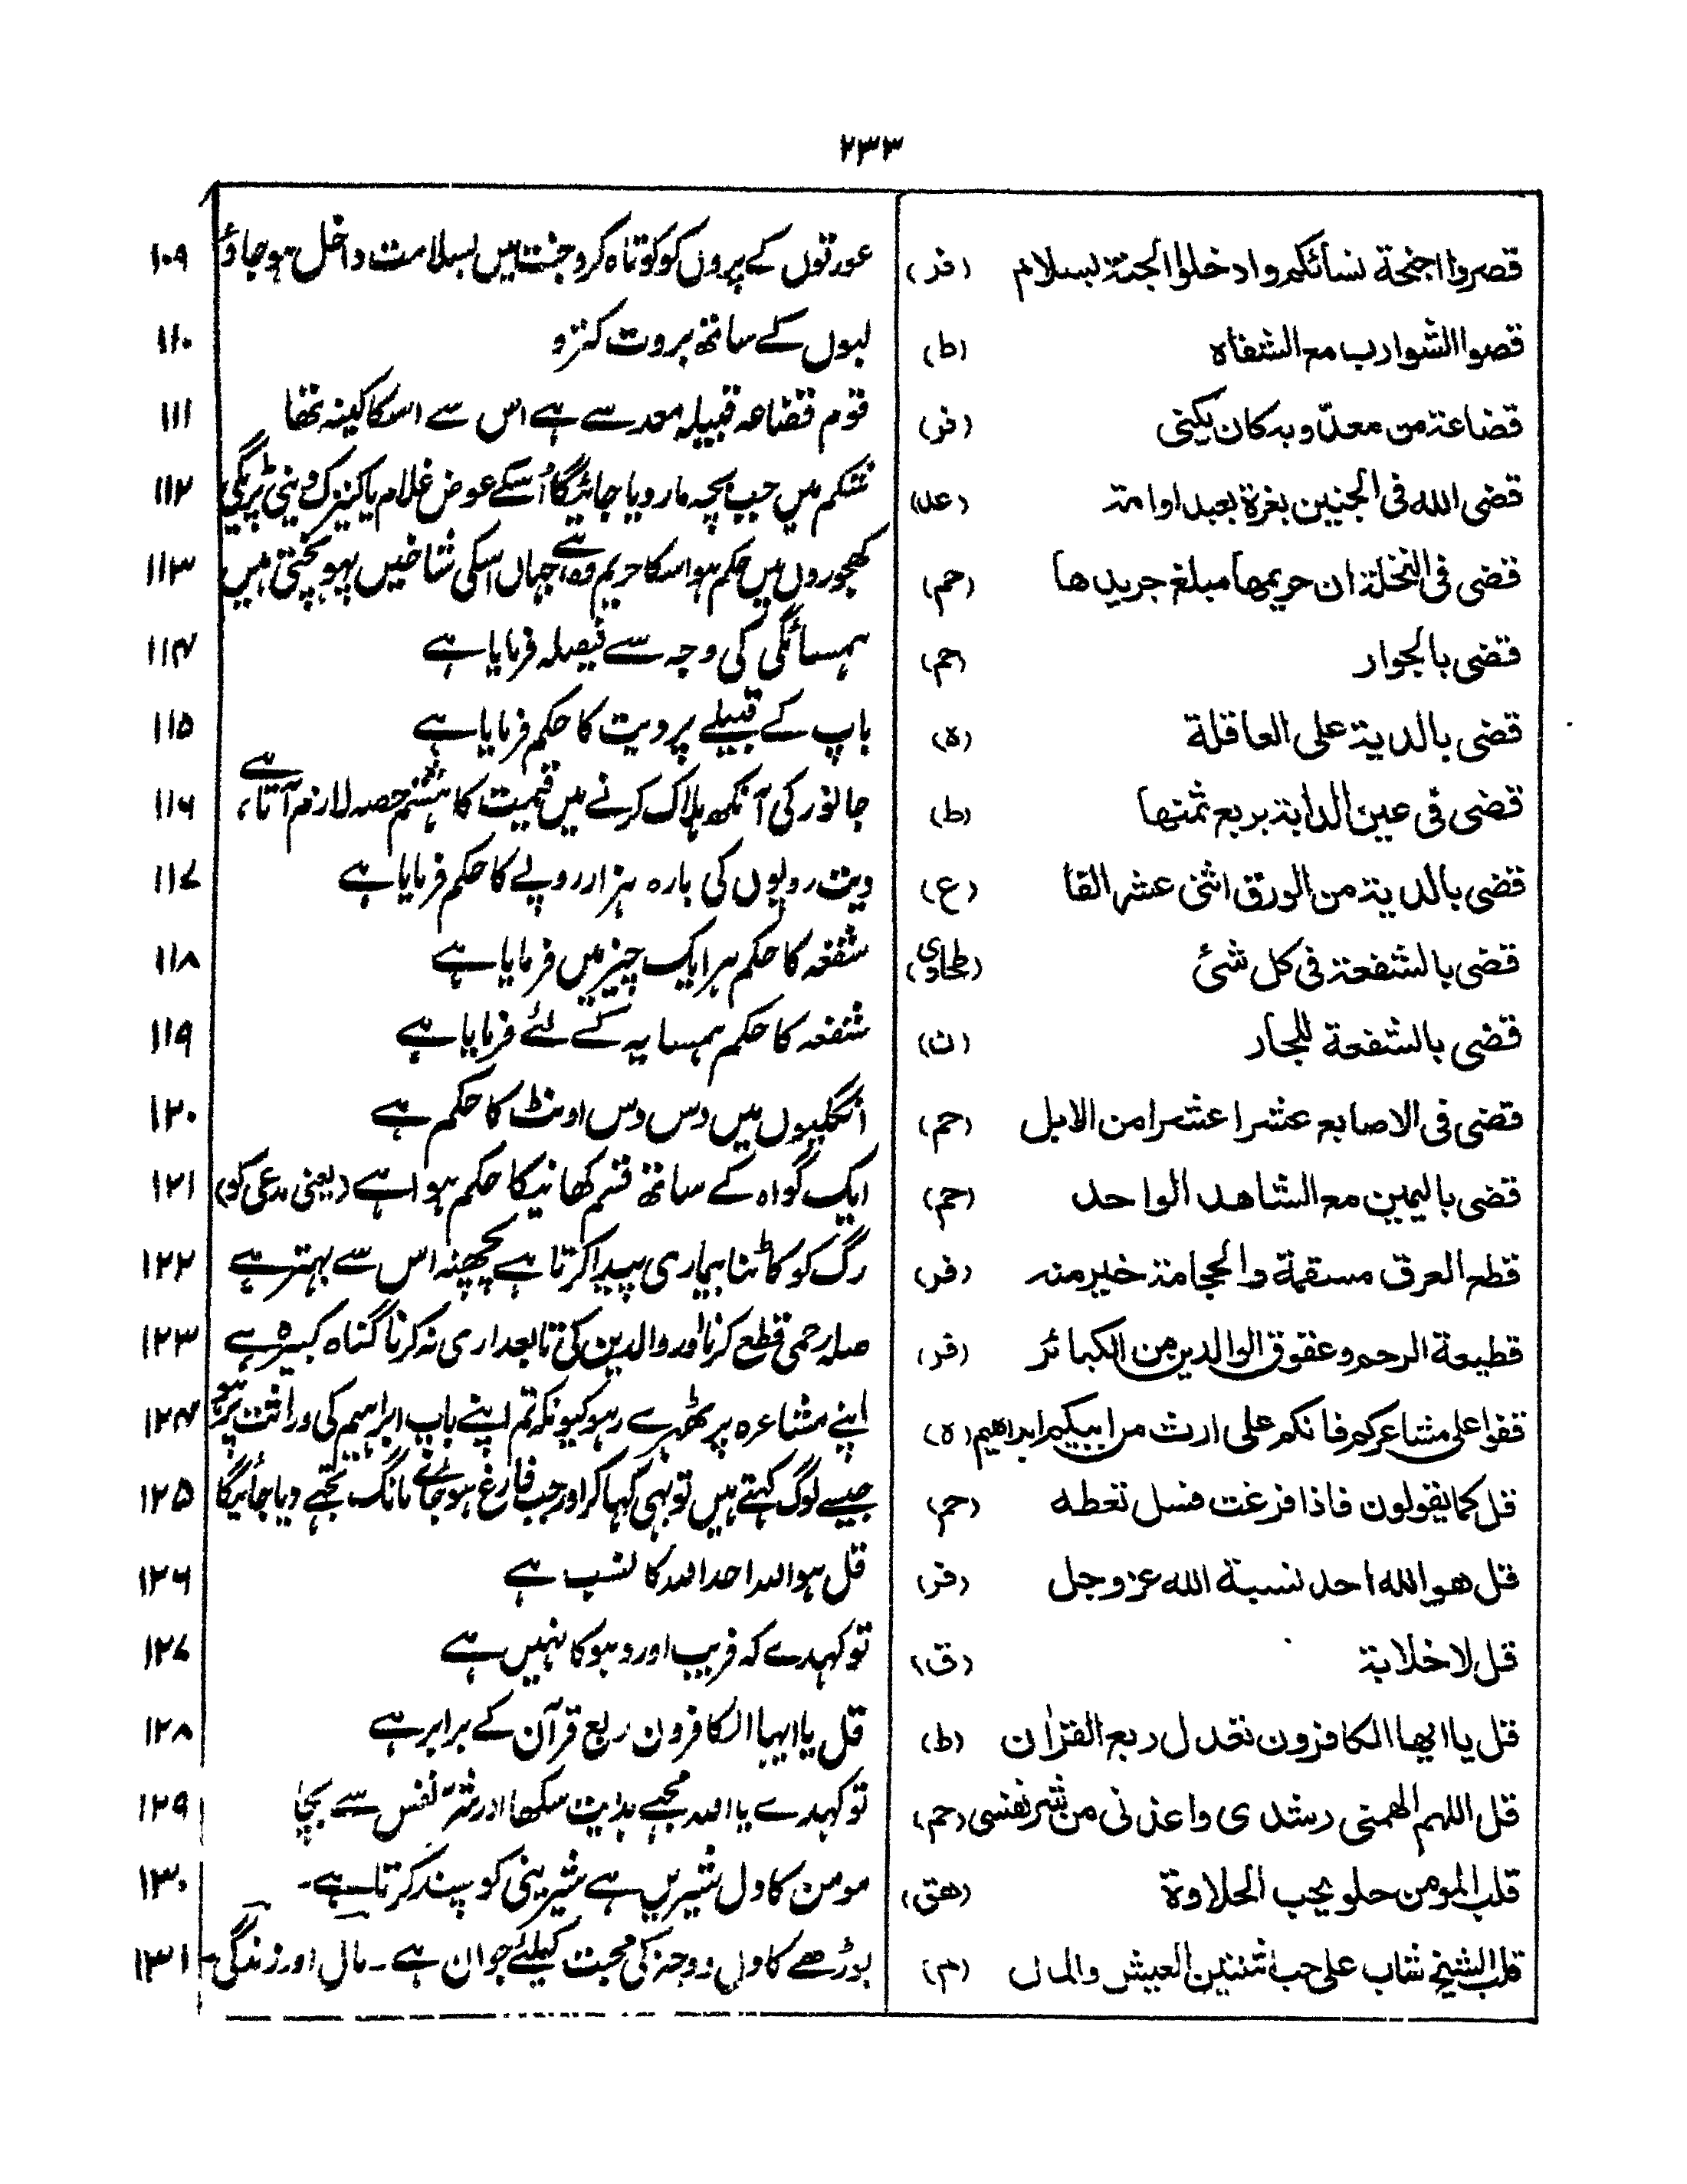 ۲۳۳
قصروا اجنحة نسائکم وادخلوا الجنة بسلام (فر) عورتوں کے پروں کو کوتاہ کرو جنت میں بسلامت داخل ہو جاؤ ۱۰۹
قصوا الشوارب مع الشفاه (ط) لبوں کے ساتھ بروت کترو ۱۱۰
قضاعة من معدّ وبه کان یکنی (فر) قوم قضاعہ قبیلہ معد سے ہے اس سے اسکا کینہ تھا ۱۱۱
قضی الله فی الجنین بغرة بعبد او امة (عد) شکم میں جب بچہ مار دیا جائیگا اُسکے عوض غلام یا کنیزک دینی پڑیگی ۱۱۲
قضی فی النخلة ان حریمها مبلغ جریدها (حم) کھجوروں میں حکم ہوا سکا حریم وہ ہے جہاں اسکی شاخیں پہونچتی ہیں ۱۱۳
قضی بالجوار (حم) ہمسائگی کی وجہ سے فیصلہ فرمایا ہے ۱۱۴
قضی بالدیة علی العاقلة (ه) باپ کے قبیلے پر دیت کا حکم فرمایا ہے ۱۱۵
قضی فی عین الدابة بربع ثمنها (ط) جانور کی آنکھ ہلاک کرنے میں قیمت کا ہشتم حصہ لازم آتا ہے ۱۱۶
قضی بالدیة من الورق اثنی عشر الفا (ع) دیت روپوں کی بارہ ہزار روپے کا حکم فرمایا ہے ۱۱۷
قضی بالشفعة فی کل شئ (طحاوی) شفعہ کا حکم ہر ایک چیز میں فرمایا ہے ۱۱۸
قضی بالشفعة للجار (ن) شفعہ کا حکم ہمسایہ کے لئے فرمایا ہے ۱۱۹
قضی فی الاصابع عشرا عشرا من الابل (حم) انگلیوں میں دس دس اونٹ کا حکم ہے ۱۲۰
قضی بالیمین مع الشاهد الواحد (حم) ایک گواہ کے ساتھ قسم کھانیکا حکم ہوا ہے (یعنی مدعی کو) ۱۲۱
قطع العرق مسقمة والحجامة خیر منه (فر) رگ کو کاٹنا بیماری پیدا کرتا ہے پچھنہ اس سے بہتر ہے ۱۲۲
قطیعة الرحم وعقوق الوالدین من الکبائر (فر) صلہ رحمی قطع کرنا اور والدین کی تابعداری نہ کرنا گناہ کبیرہ ہے ۱۲۳
قفوا علی مشاعرکم فانکم علی ارث من ابیکم ابراهیم (ه) اپنے مشاعرہ پر ٹھہرے رہو کیونکہ تم اپنے باپ ابراہیم کی وراثت پر ہو ۱۲۴
قل کما یقولون فاذا فرغت فسل تعطه (حم) جیسے لوگ کہتے ہیں تو بھی کہا کر اور جب فارغ ہو جائے مانگ تجھے دیا جائیگا ۱۲۵
قل هو الله احد نسبة الله عز وجل (فر) قل ہو اللہ احد اللہ کا نسب ہے ۱۲۶
قل لا خلابة (ق) تو کہدے کہ فریب اور دہوکا نہیں ہے ۱۲۷
قل یا ایها الکافرون تعدل ربع القرآن (ط) قل یا ایہا الکافرون ربع قرآن کے برابر ہے ۱۲۸
قل اللهم الهمنی رشدی واعذنی من شر نفسی (حم) تو کہدے یا اللہ مجھے ہدایت سکھا اور شرّ نفس سے بچا ۱۲۹
قلب المومن حلو یحب الحلاوة (هق) مومن کا دل شیریں ہے شیرینی کو پسند کرتا ہے۔ ۱۳۰
قلب الشیخ شاب علی حب اثنتین العیش والمال (م) بوڑھے کا دل دو چیز کی محبت کیلئے جوان ہے۔ مال اور زندگی۔ ۱۳۱